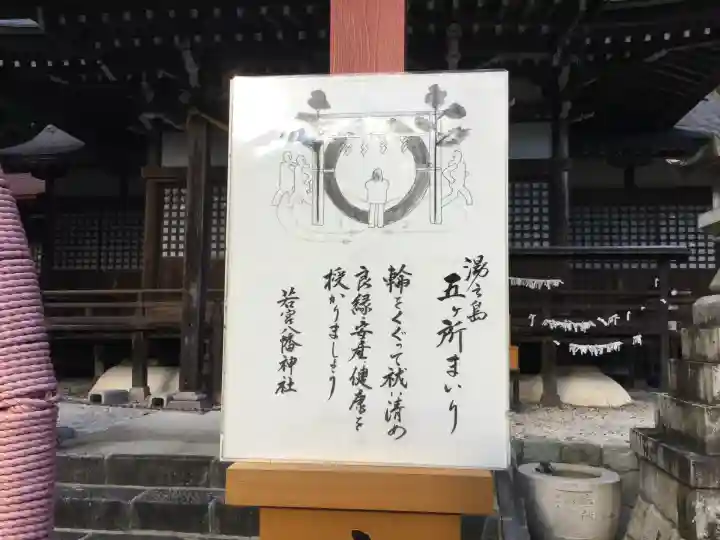 湯之島
五ヶ所まいり
輪をくぐって祓い清め
良縁・安産・健康を
授かりましょう
若宮八幡神社